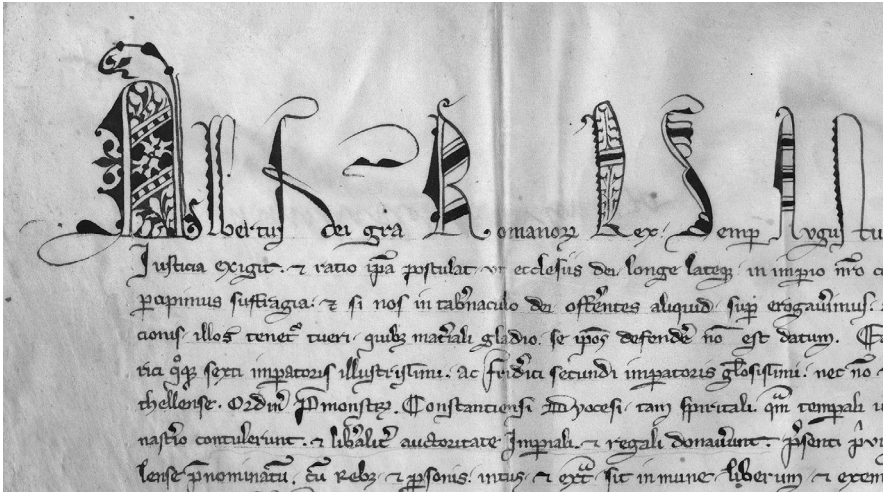 Albertus dei gra Romanorꝝ Rex. Semp Augustu
Iusticia exigit. ⁊ ratio ip̄a postulat. ut ecclesiis dei. longe lateqꝫ in imp̄io nr̄o
p̄cipimus suffragia. ⁊ si nos in tab̄naculo dei offer̄entes aliquid. sup̄ erogav̄imus.
cionis. illos tenet᷑ tueri. quibꝫ mat̄iali gladio. se ip̄os defender̄ nō est datum.
rici qͦqꝫ sexti imp̄atoris illustrissimi. ac frid̄ici secundi imp̄atoris gl̄osissimi. nec nō
thellense. Ordinis P̄monstrꝝ. Constanciensi Dyocesi. tam spiritali. qm̄ temp̄ali
nast̄io contulerunt. ⁊ lib̄alit̄ auctoritate Imp̄iali. ⁊ regali donav̄unt. p̄senti
lense p̄nominatū. cū Rebꝫ. ⁊ p̄sonis. intus. ⁊ ext᷑a. sit inmune. liberum. ⁊ exem